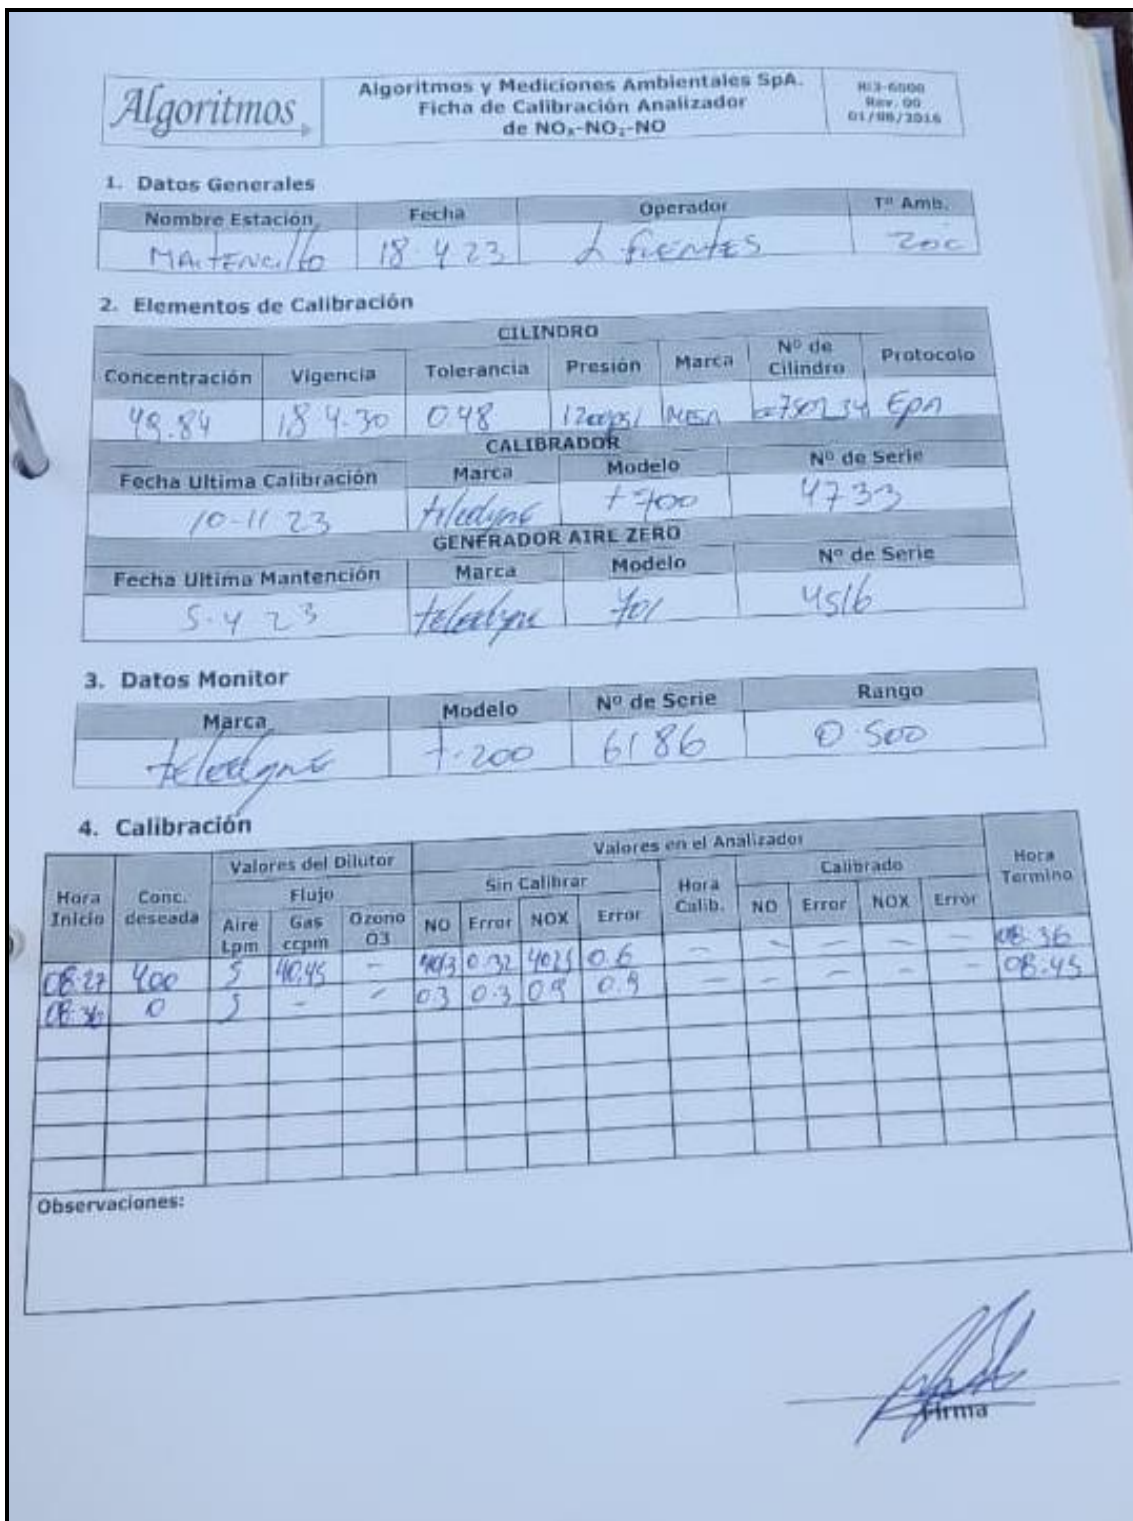 Algoritmos
Algoritmos y Mediciones Ambientales SpA.
Ficha de Calibración Analizador
de NOx-NO2-NO
RI3-6000
Rev. 00
01/08/2016
1. Datos Generales
Nombre Estación Fecha Operador Tº Amb.
MAitENcillo 18-4 23 L fuENtES 20ºc
2. Elementos de Calibración
CILINDRO
Concentración Vigencia Tolerancia Presión Marca Nº de Cilindro Protocolo
49.84 18 4-30 0.48 1200psi EPA
CALIBRADOR
Fecha Ultima Calibración Marca Modelo Nº de Serie
10-11 23 teledyne t-700 4733
GENERADOR AIRE ZERO
Fecha Ultima Mantención Marca Modelo Nº de Serie
5-4 23 teledyne 701 4516
3. Datos Monitor
Marca Modelo Nº de Serie Rango
teledyne t-200 6186 0-500
4. Calibración
Valores del Dilutor Valores en el Analizador
Hora Inicio Conc. deseada Flujo Sin Calibrar Hora Calib. Calibrado Hora Termino
Aire Lpm Gas ccpm Ozono O3 NO Error NOX Error NO Error NOX Error
08:27 400 5 40.45 - 401.3 0.32 402.5 0.6 - - - - - 08:36
08:36 0 5 - - 0.3 0.3 0.9 0.9 - - - - - 08:45
Observaciones:
Firma